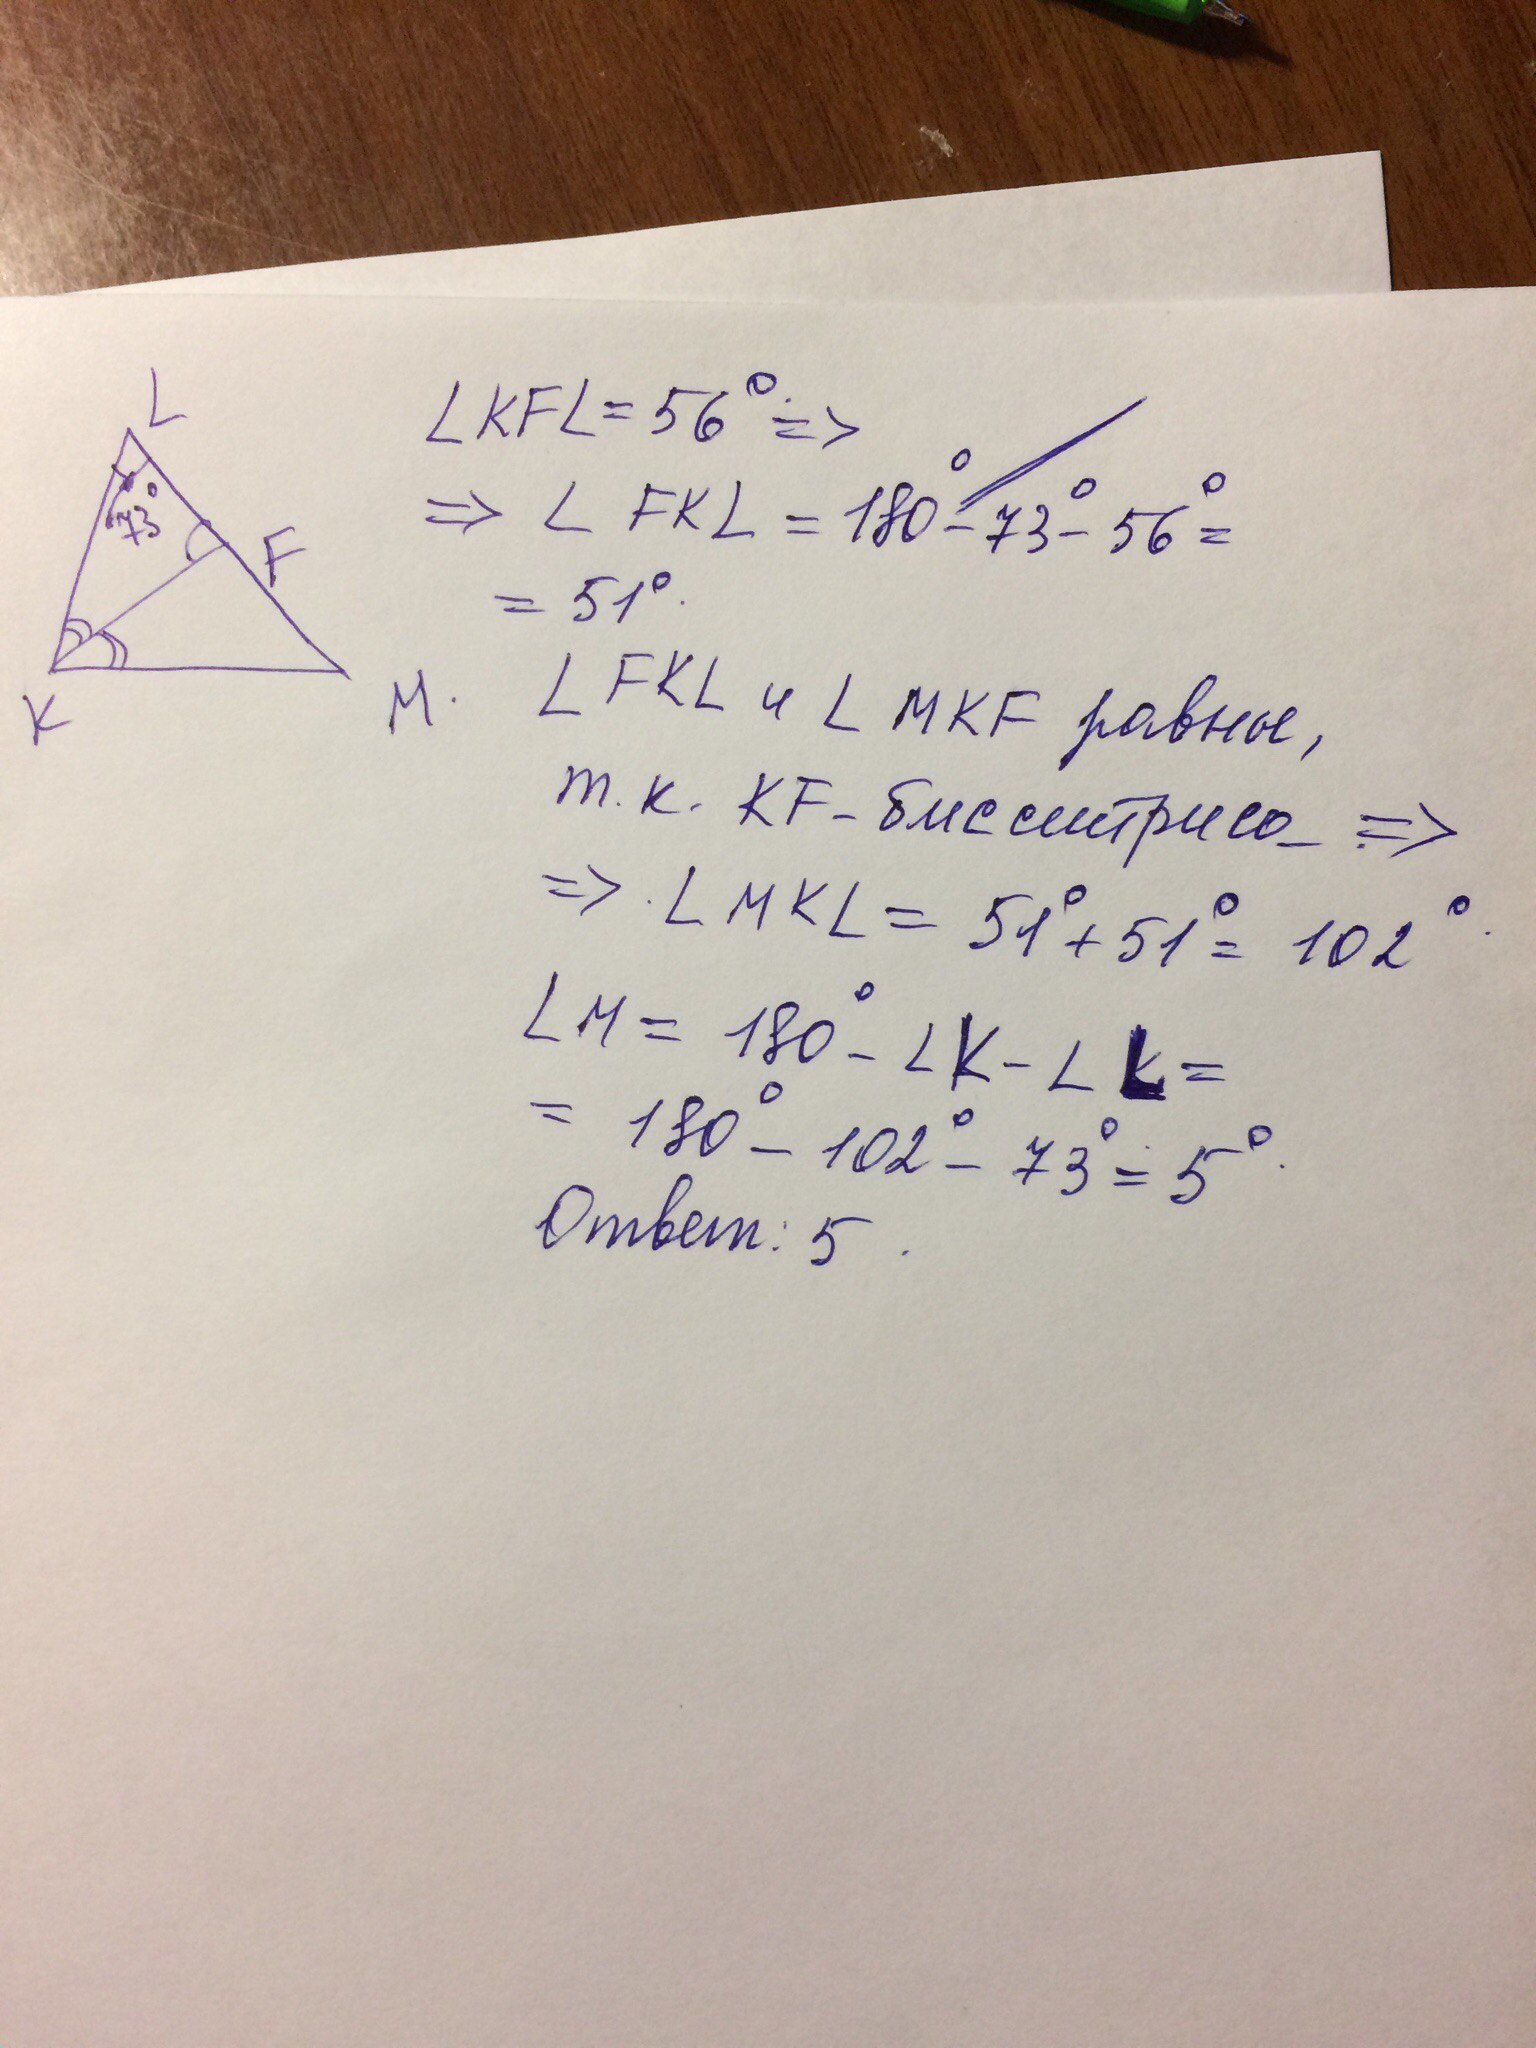 L
73°
F
K
M.
∠KFL = 56° =>
=> ∠ FKL = 180° - 73° - 56° =
= 51°.
∠ FKL и ∠ MKF равны,
т.к. KF - биссектриса =>
=> ∠ MKL = 51° + 51° = 102°.
∠M = 180° - ∠K - ∠ L =
= 180° - 102° - 73° = 5°.
Ответ: 5.